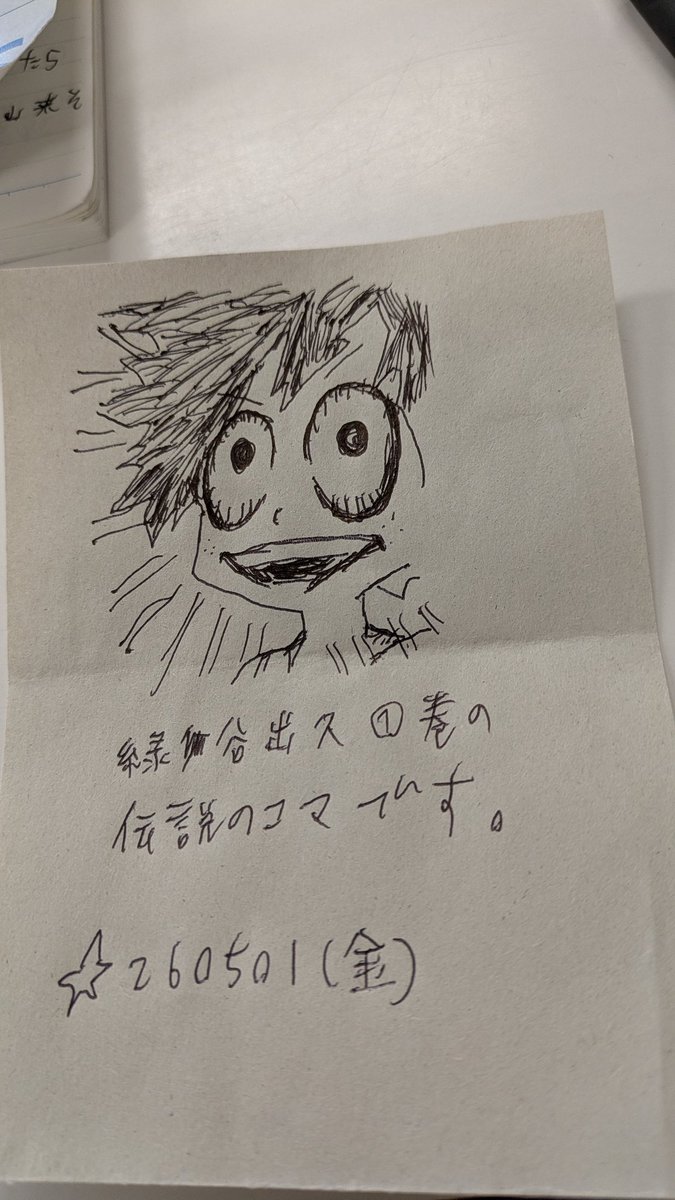 緑谷出久①巻の
伝説のコマです。
☆260501(金)